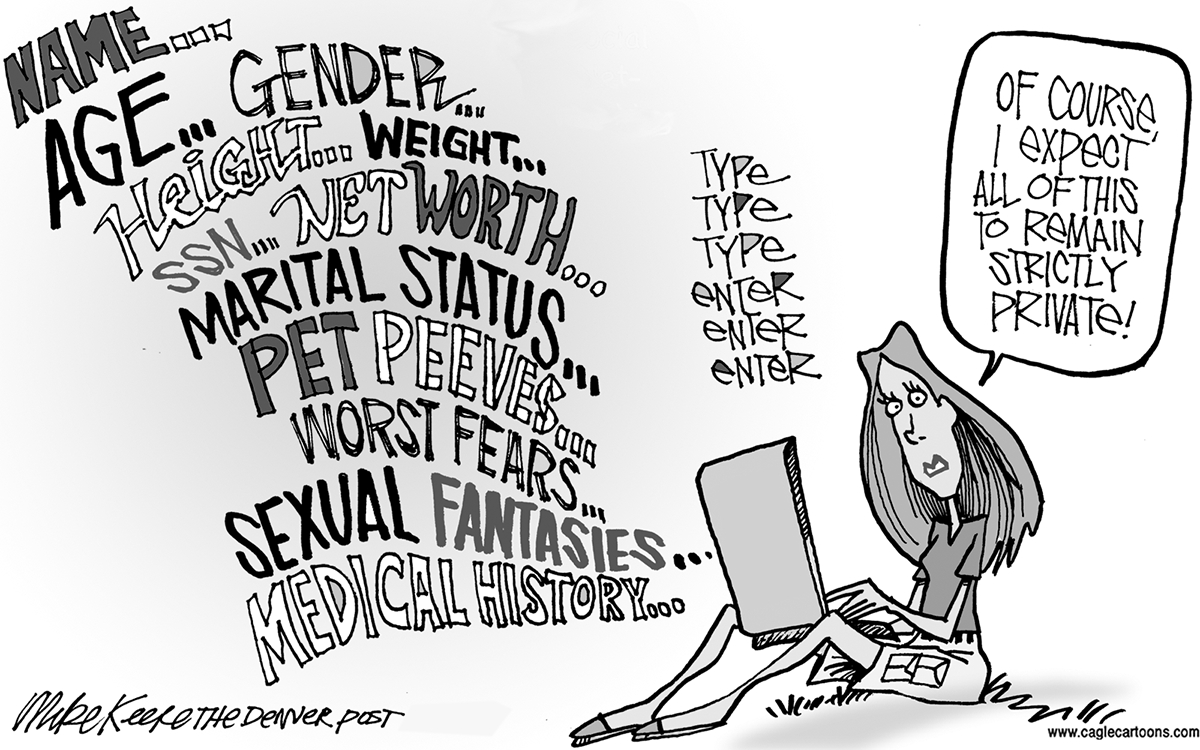 NAME....
AGE... GENDER....
HEIGHT... WEIGHT...
SSN.... NET WORTH...
MARITAL STATUS...
PET PEEVES...
WORST FEARS...
SEXUAL FANTASIES...
MEDICAL HISTORY...
TYPE
TYPE
TYPE
ENTER
ENTER
ENTER
OF COURSE,
I EXPECT
ALL OF THIS
TO REMAIN
STRICTLY
PRIVATE!
Mike Keefe THE DENVER POST
www.caglecartoons.com